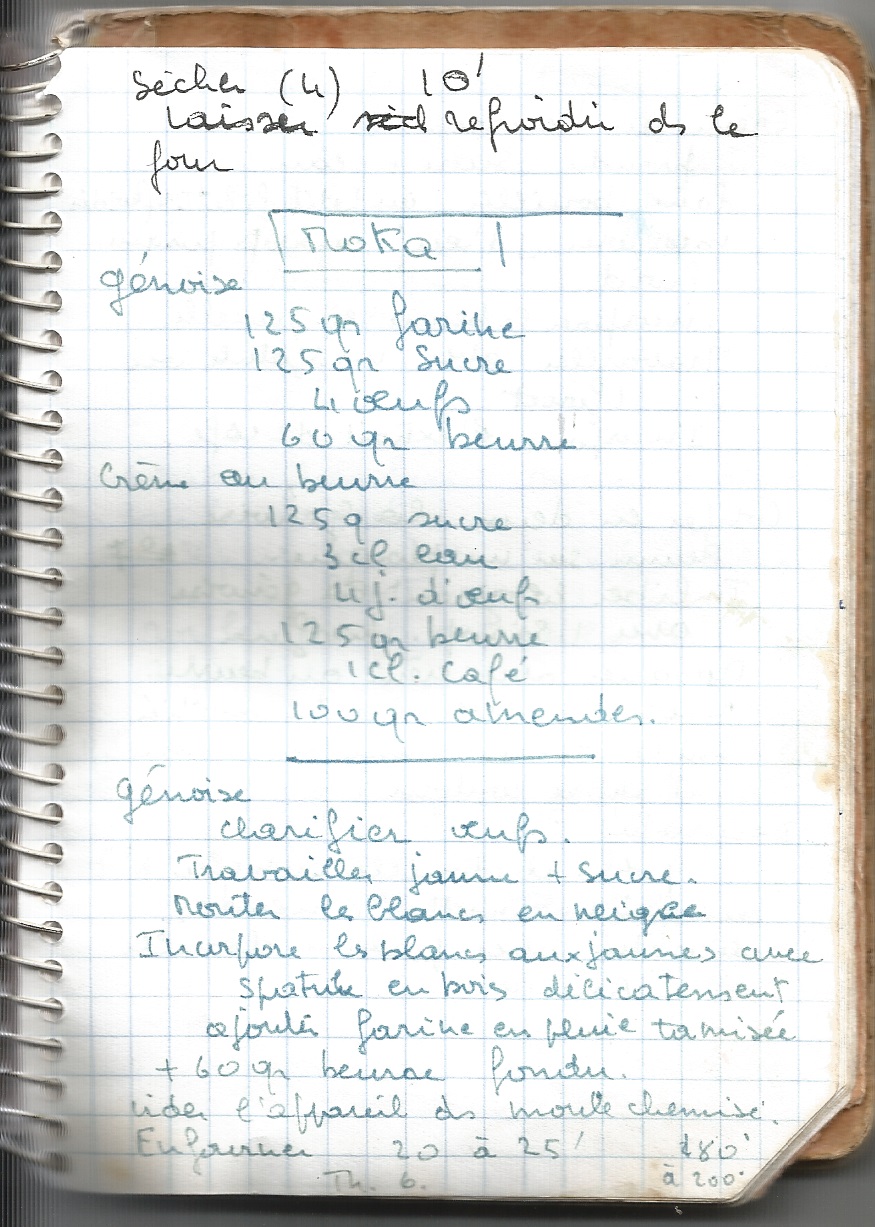 Sécher (4) 10'
Laisser refroidir ds le
four
Moka
génoise
125 gr farine
125 gr Sucre
4 œufs
60 gr beurre
Crème au beurre
125 g sucre
3 cl eau
4 j. d'œufs
125 gr beurre
1 cl. café
100 gr amendes.
génoise
clarifier œufs.
Travailler jaune + sucre.
Monter les blancs en neige
Incorpore les blancs aux jaunes avec
spatule en bois délicatement
ajouter farine en pluie tamisée
+ 60 gr beurre fondu.
vider l'appareil ds moule chemisé.
Enfourner 20 à 25' 180°
Th. 6. à 200°